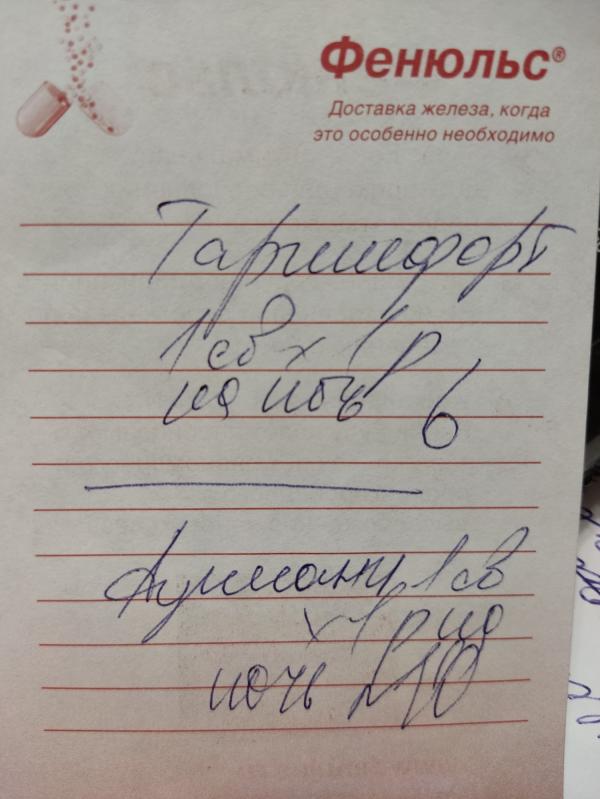 Фенюльс®
Доставка железа, когда
это особенно необходимо
1 св х 1 р
на ночь 6
1 св
х 1 р на
ночь №10